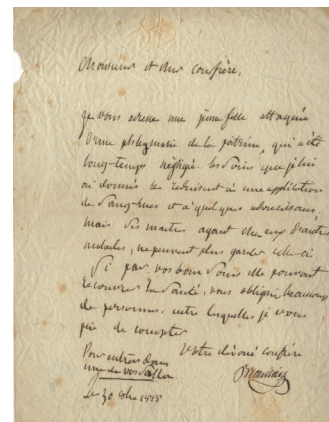 Monsieur et cher confrère,
je vous adresse une jeune fille attaquée
d'une phlegmasie de la poitrine, qui a été
long-temps négligée. les soins que je lui
ai donnés se réduisent à une application
de sang-sues et à quelques adoucissans.
mais ses maitres ayant chez eux d'autres
malades, ne peuvent plus garder celle-ci
Si par vos bons soins elle pouvait
recouvrer la santé, vous obligeriez beaucoup
de personnes, entre lesquelles je vous
prie de compter
Votre dévoué confrère
Pour entrer dans
une de vos salles
Le 30